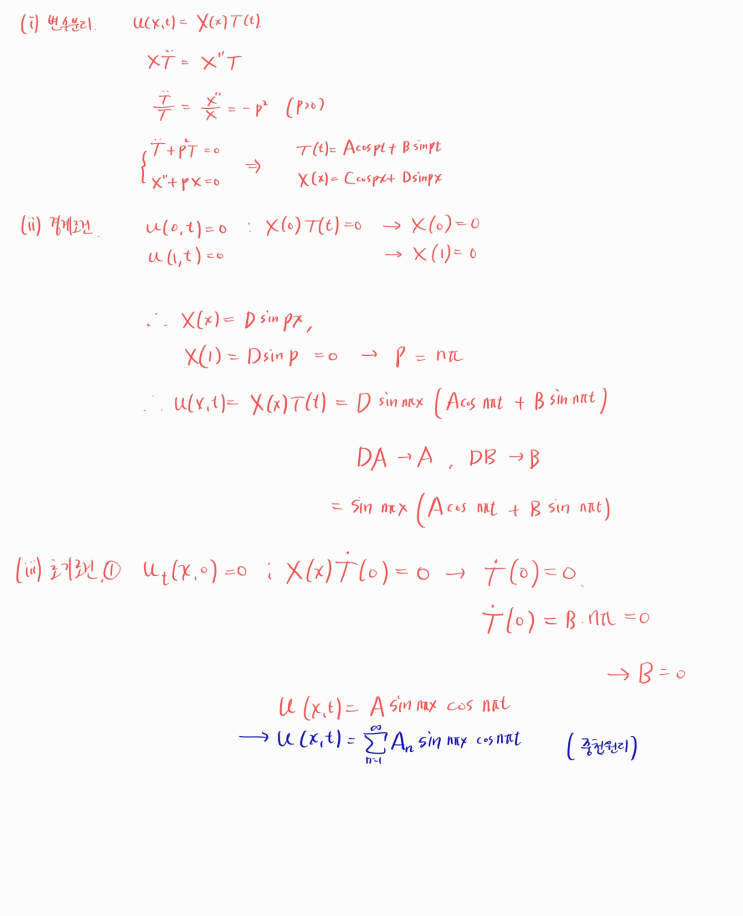 (i) 변수분리. u(x,t) = X(x)T(t)
XT̈ = X''T
T̈/T = X''/X = -p² (p>0)
{ T̈+p²T=0 ⇒ T(t) = Acospt + Bsinpt
X''+pX=0 X(x) = Ccospx + Dsinpx
(ii) 경계조건. u(0,t)=0 : X(0)T(t)=0 → X(0)=0
u(1,t)=0 → X(1)=0
∴ X(x) = Dsinpx,
X(1) = Dsinp = 0 → p = nπ
∴ u(x,t) = X(x)T(t) = D sin nπx (Acos nπt + B sin nπt)
DA → A , DB → B
= sin nπx (Acos nπt + B sin nπt)
(iii) 초기조건.① u_t(x,0)=0 ; X(x)Ṫ(0)=0 → Ṫ(0)=0.
Ṫ(0) = B·nπ = 0
→ B=0
u(x,t) = A sin nπx cos nπt
→ u(x,t) = ∑_{n=1}^{∞} A_n sin nπx cos nπt (중첩원리)